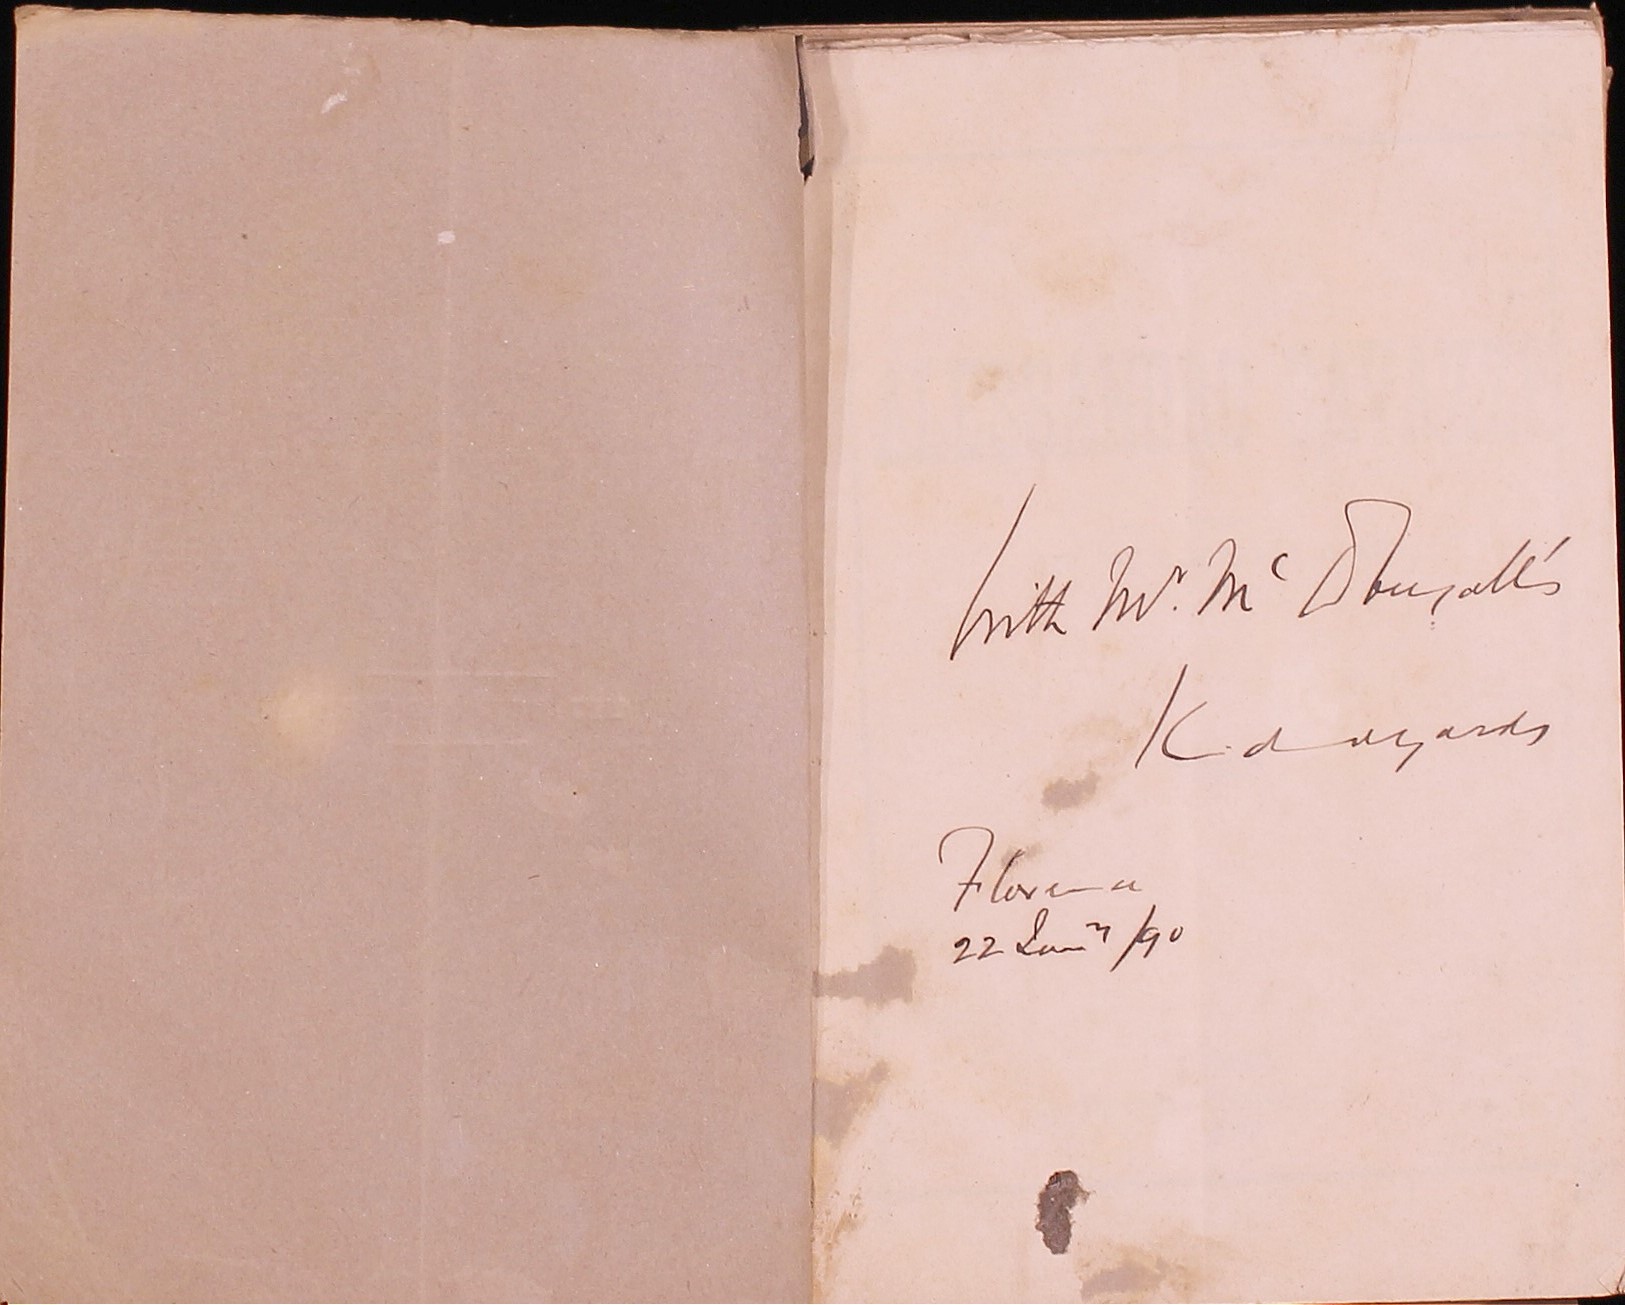 With Mr. Mc Dougall's
Kind regards
Florence
22 Jany /90